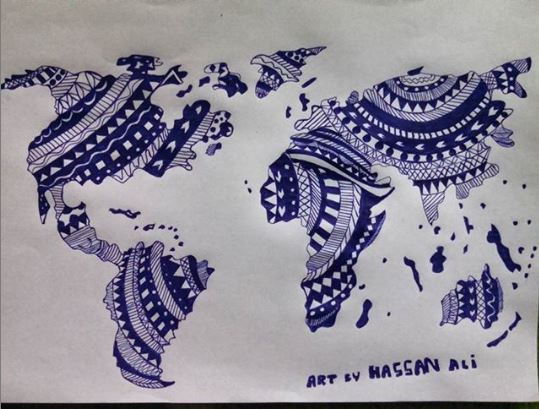 ART BY HASSAN ALi